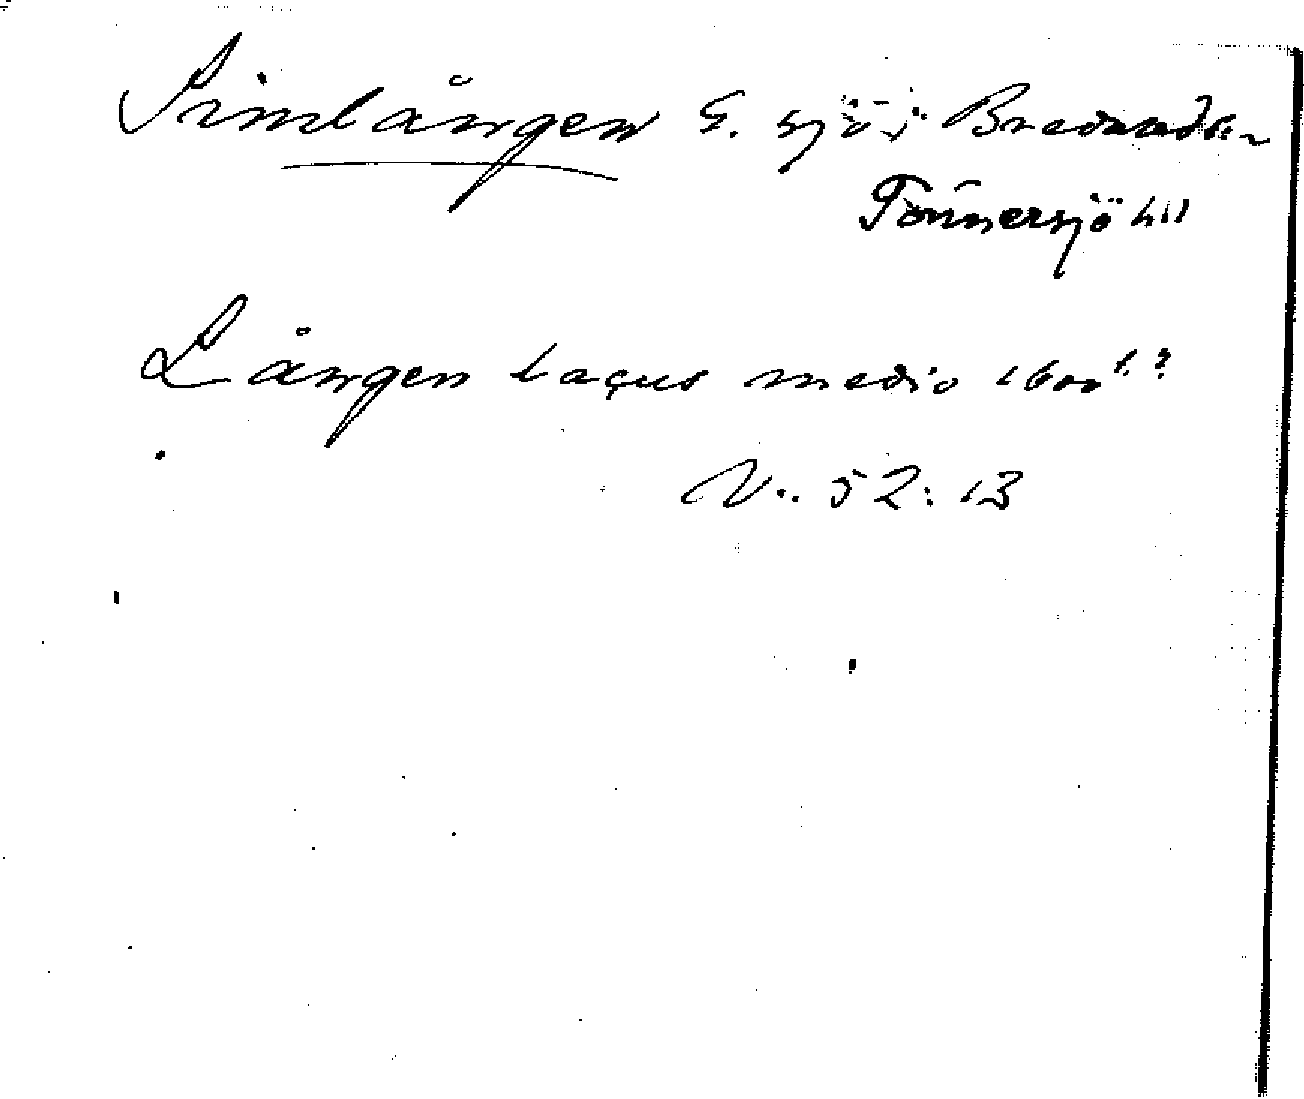 Simlången S. sjö i Bredaryds
Tönnersjö hd
Lången lacus medio 1600 t. ?
N.. 52: 13